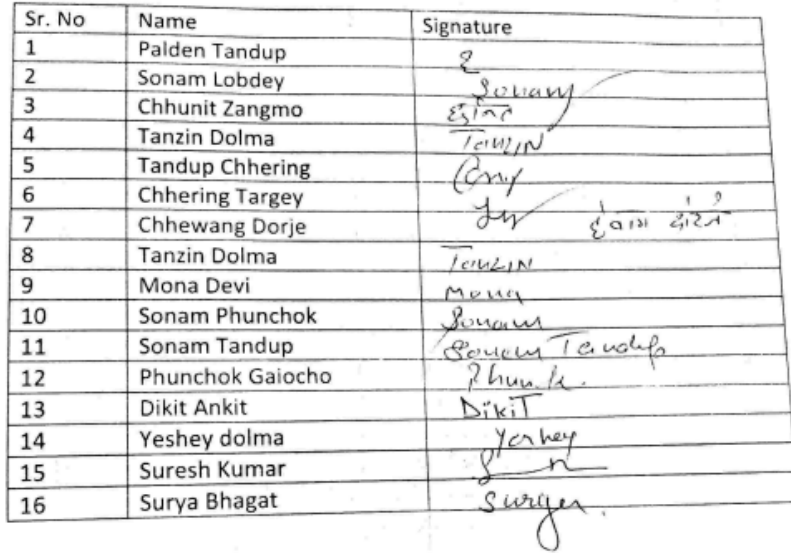 Sr. No Name Signature
1 Palden Tandup
2 Sonam Lobdey Sonam
3 Chhunit Zangmo
4 Tanzin Dolma Tanzin
5 Tandup Chhering
6 Chhering Targey
7 Chhewang Dorje
8 Tanzin Dolma Tanzin
9 Mona Devi Mona
10 Sonam Phunchok Sonam
11 Sonam Tandup Sonam Tandup
12 Phunchok Gaiocho
13 Dikit Ankit Dikit
14 Yeshey dolma Yeshey
15 Suresh Kumar
16 Surya Bhagat